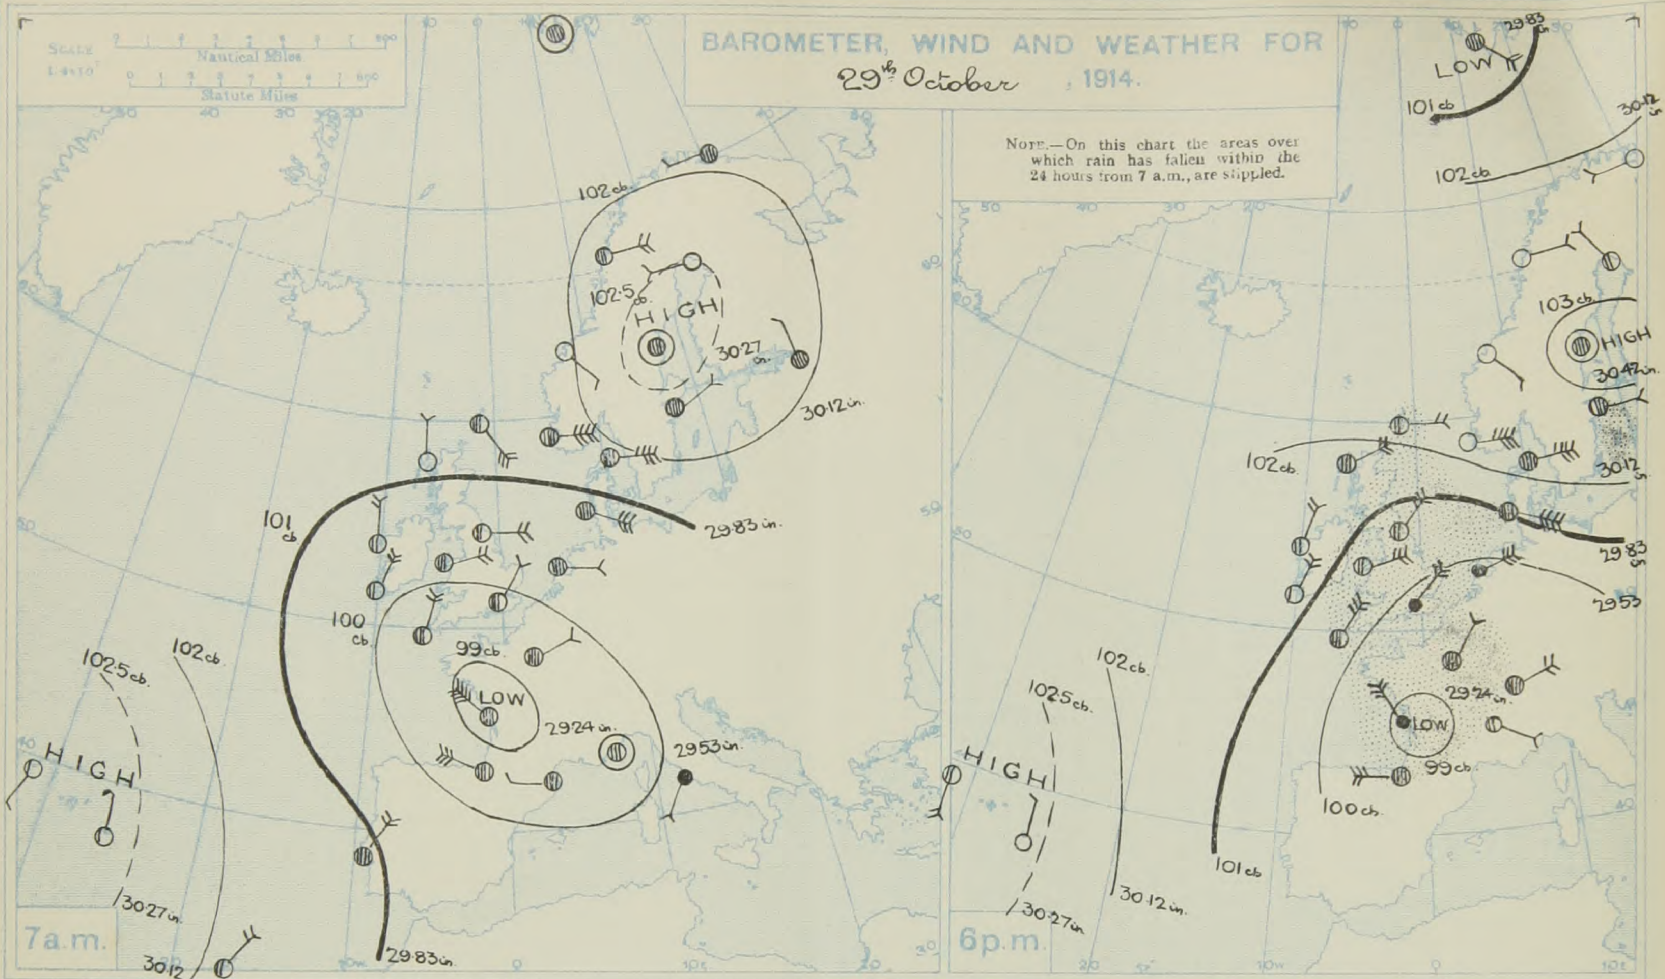 SCALE
Nautical Miles
Statute Miles
BAROMETER, WIND AND WEATHER FOR
29th October, 1914.
NOTE.—On this chart the areas over
which rain has fallen within the
24 hours from 7 a.m., are stippled.
102 cb.
102.5 cb.
HIGH
30.27 in.
30.12 in.
101 cb
29.83 in.
100 cb.
99 cb.
LOW
29.24 in.
29.53 in.
102.5 cb.
102 cb.
HIGH
30.27 in.
30.12
29.83 in.
7 a.m.
29.83 in
LOW
101 cb
30.12 in
102 cb.
103 cb.
HIGH
30.42 in.
102 cb.
30.12 in.
29.83 in
29.53
102 cb.
102.5 cb.
29.24 in.
LOW
HIGH
99 cb.
100 cb.
101 cb
30.12 in.
30.27 in.
6 p.m.